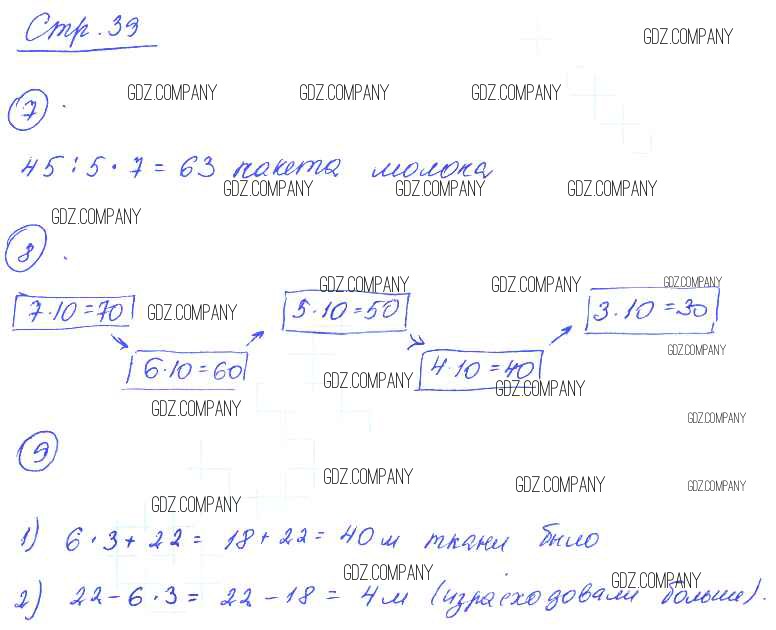 Стр. 39
GDZ.COMPANY
GDZ.COMPANY GDZ.COMPANY GDZ.COMPANY
7.
45:5·7=63 пакета молока
GDZ.COMPANY GDZ.COMPANY GDZ.COMPANY
GDZ.COMPANY
8.
GDZ.COMPANY GDZ.COMPANY GDZ.COMPANY
7·10=70 GDZ.COMPANY 5·10=50 3·10=30
GDZ.COMPANY
6·10=60 GDZ.COMPANY 4·10=40 GDZ.COMPANY
GDZ.COMPANY GDZ.COMPANY
9
GDZ.COMPANY GDZ.COMPANY GDZ.COMPANY
GDZ.COMPANY
1) 6·3+22= 18+22=40м ткани было
GDZ.COMPANY GDZ.COMPANY
2) 22-6·3= 22-18=4м (израсходовали больше).